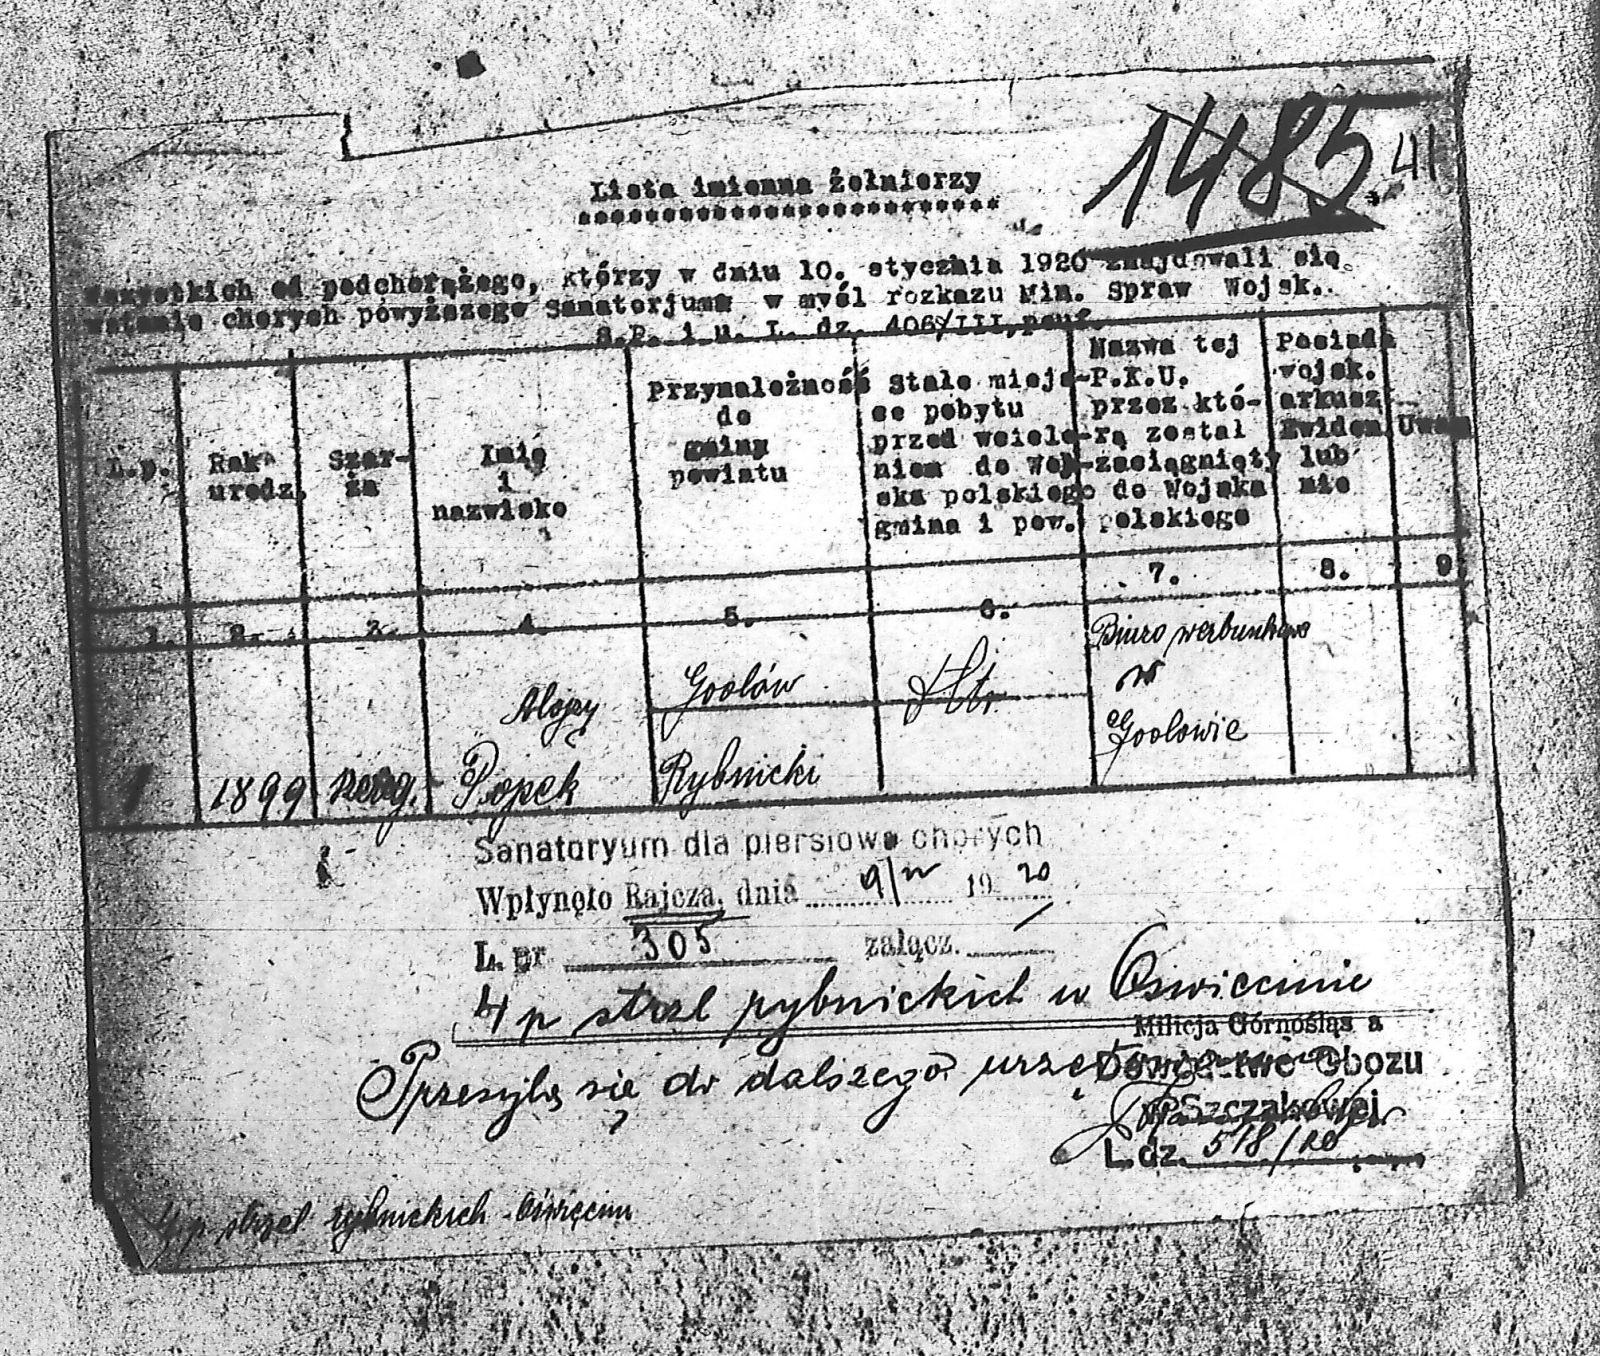 1485
41
Lista imienna żołnierzy
wszystkich od podchorążego, którzy w dniu 10. stycznia 1920 znajdowali się
wstanie chorych powyższego Sanatorjum w myśl rozkazu Min. Spraw Wojsk.
L. dz. 406/III, pouf.
L.p.
Rok
urodz.
Szar-
ża
Imię
i
nazwisko
Przynależność
do
gminy
powiatu
Stałe miejs-
ce pobytu
przed wciele-
niem do Woj-
ska polskiego
gmina i pow.
Nazwa tej
P.K.U.
przez któ-
rą został
zaciągnięty
do Wojska
polskiego
Posiada
wojsk.
arkusz
Ewiden
lub
nie
Uwaga
1. 2. 3. 4. 5. 6. 7. 8. 9.
1
1899
Alojzy
Popek
Godów
Rybnicki
Biuro werbunkowe
w
Godowie
Sanatoryum dla piersiowo chorych
Wpłynęło Rajcza, dnia 9/IV 1920
L. pr 305 załącz.
4 p strzel rybnickich w Oświęcimie
Przesyła się do dalszego
Milicja Górnośląs a
Dowództwo Obozu
w Szczakowej
L. dz. 518/20
4 p. strzel rybnickich Oświęcim